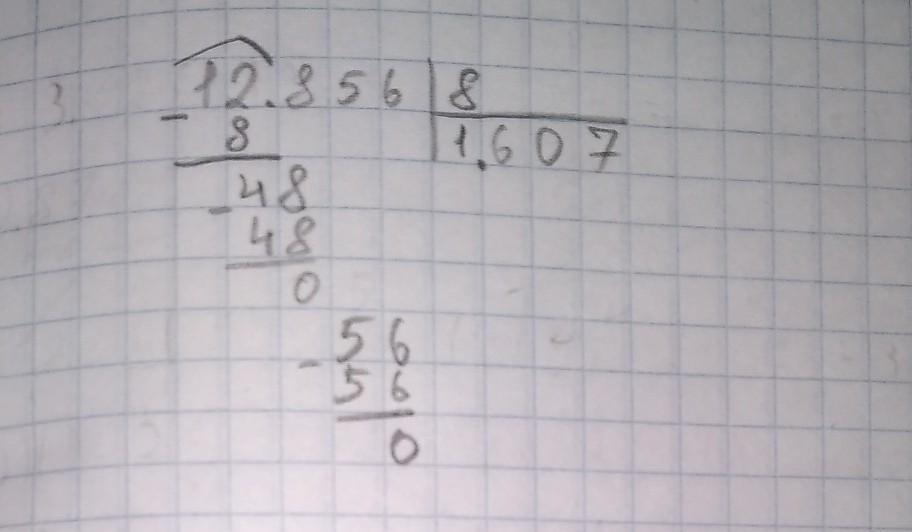 3. 12.856 | 8
- 8 1.607
- 48
48
0
- 56
56
0